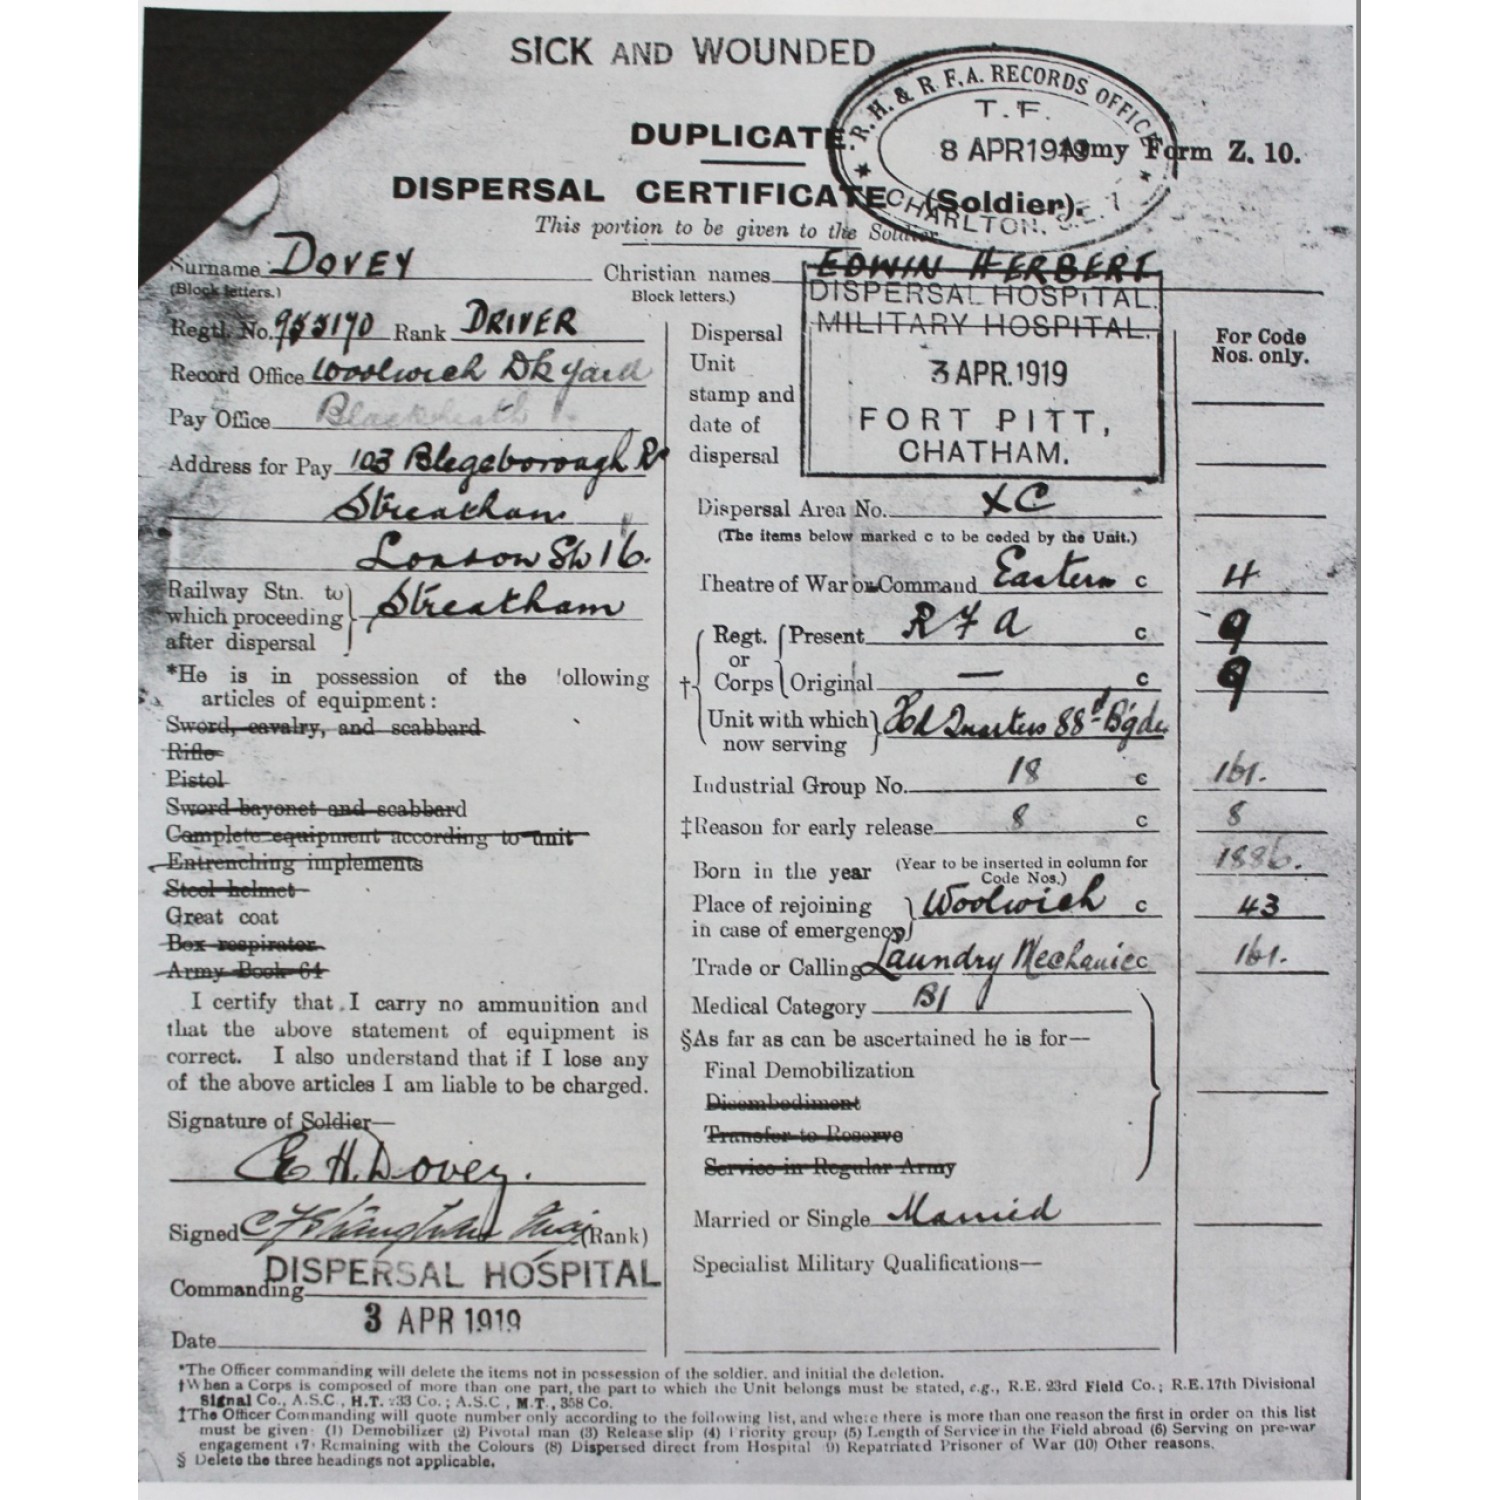 SICK AND WOUNDED
R. H. & R. F. A. RECORDS OFFICE
T. F.
8 APR 1919
CHARLTON, S.E. 7
DUPLICATE.
Army Form Z. 10.
DISPERSAL CERTIFICATE (Soldier).
This portion to be given to the Soldier.
Surname DOVEY
(Block letters.)
Christian names EDWIN HERBERT
Block letters.)
Regtl. No. 955170 Rank DRIVER
Record Office Woolwich Dk Yard
Pay Office Blackheath
Address for Pay 103 Blegeborough Rd
Streatham
London SW 16.
Railway Stn. to which proceeding after dispersal } Streatham
*He is in possession of the following
articles of equipment:
Sword, cavalry, and scabbard
Rifle
Pistol
Sword bayonet and scabbard
Complete equipment according to unit
Entrenching implements
Steel helmet
Great coat
Box respirator
Army Book 64
I certify that I carry no ammunition and
that the above statement of equipment is
correct. I also understand that if I lose any
of the above articles I am liable to be charged.
Signature of Soldier—
E H. Dovey.
Signed (Rank)
Commanding DISPERSAL HOSPITAL
Date 3 APR 1919
Dispersal
Unit
stamp and
date of
dispersal
DISPERSAL HOSPITAL.
MILITARY HOSPITAL.
3 APR. 1919
FORT PITT,
CHATHAM.
For Code
Nos. only.
Dispersal Area No. XC
(The items below marked c to be coded by the Unit.)
Theatre of War or Command Eastern c 4
†{ Regt. or Corps { Present R F A c 9
Original — c 9
Unit with which now serving } Hd Quarters 88th Bgde
Industrial Group No. 18 c 161.
‡Reason for early release 8 c 8
Born in the year (Year to be inserted in column for Code Nos.) 1886.
Place of rejoining in case of emergency } Woolwich c 43
Trade or Calling Laundry Mechanic c 161.
Medical Category B1
§As far as can be ascertained he is for—
Final Demobilization
Disembodiment
Transfer to Reserve
Service in Regular Army
Married or Single Married
Specialist Military Qualifications—
*The Officer commanding will delete the items not in possession of the soldier, and initial the deletion.
†When a Corps is composed of more than one part, the part to which the Unit belongs must be stated, e.g., R.E. 23rd Field Co.; R.E. 17th Divisional
Signal Co., A.S.C., H.T. 233 Co.; A.S.C., M.T., 358 Co.
‡The Officer Commanding will quote number only according to the following list, and where there is more than one reason the first in order on this list
must be given (1) Demobilizer (2) Pivotal man (3) Release slip (4) Priority group (5) Length of Service in the Field abroad (6) Serving on pre-war
engagement (7) Remaining with the Colours (8) Dispersed direct from Hospital (9) Repatriated Prisoner of War (10) Other reasons.
§ Delete the three headings not applicable.